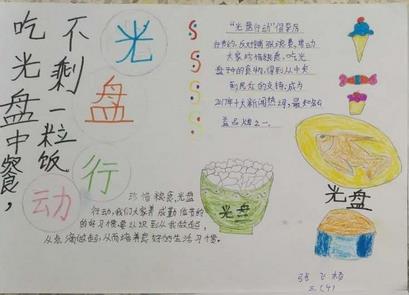 吃光盘中餐，
不剩一粒饭
光
盘
行
动
"光盘行动"倡导厉
行节约，反对铺张浪费，带动
大家珍惜粮食、吃光
盘子中的食物，得到从中央
到民众的支持，成为
2013年十大新闻热词，最知名公
益品牌之一。
珍惜粮食，光盘
行动，我们大家养成勤俭节约
的好习惯要从
做起，从而培养良好的生活习惯。
光盘
光盘
三（4）